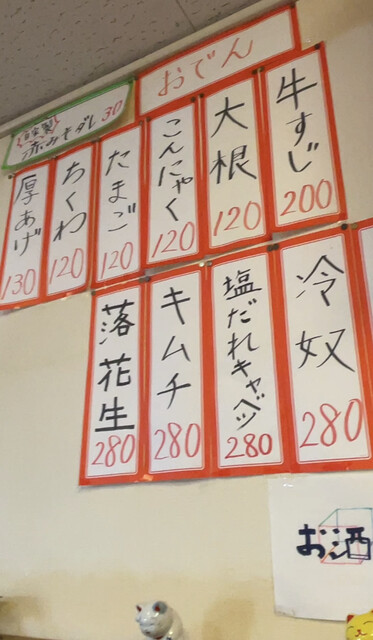 おでん
牛すじ
200
大根
120
こんにゃく
120
たまご
120
ちくわ
120
厚あげ
130
自家製
赤みそダレ 30
冷奴
280
塩だれキャベツ
280
キムチ
280
落花生
280
お酒